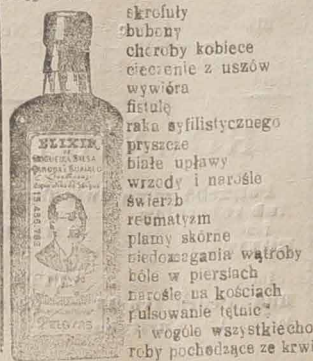 skrofuły
bubony
choroby kobiece
cieczenie z uszów
wywióra
fistułę
raka syfilistycznego
pryszcze
białe upławy
wrzody i narośle
świerzb
reumatyzm
plamy skórne
niedomagania wątroby
bóle w piersiach
narośle na kościach
pulsowanie tętnic
i wogóle wszystkie cho
roby pochodzące ze krwi
ELIXIR